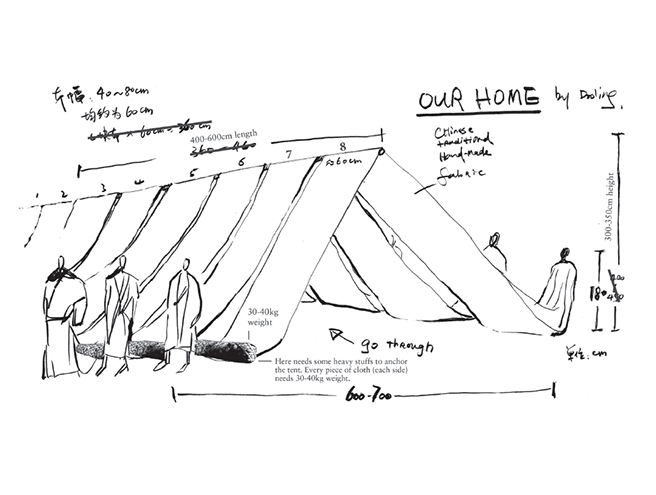 布幅: 40~80cm
均约为 60cm
OUR HOME by Daoling.
400-600cm length
Chinese
traditional
Hand-made
fabric
1 2 3 4 5 6 7 8
≈60cm
300-350cm height
180
30-40kg
weight
go through
Here needs some heavy stuffs to anchor
the tent. Every piece of cloth (each side)
needs 30-40kg weight.
单位: cm
600-700